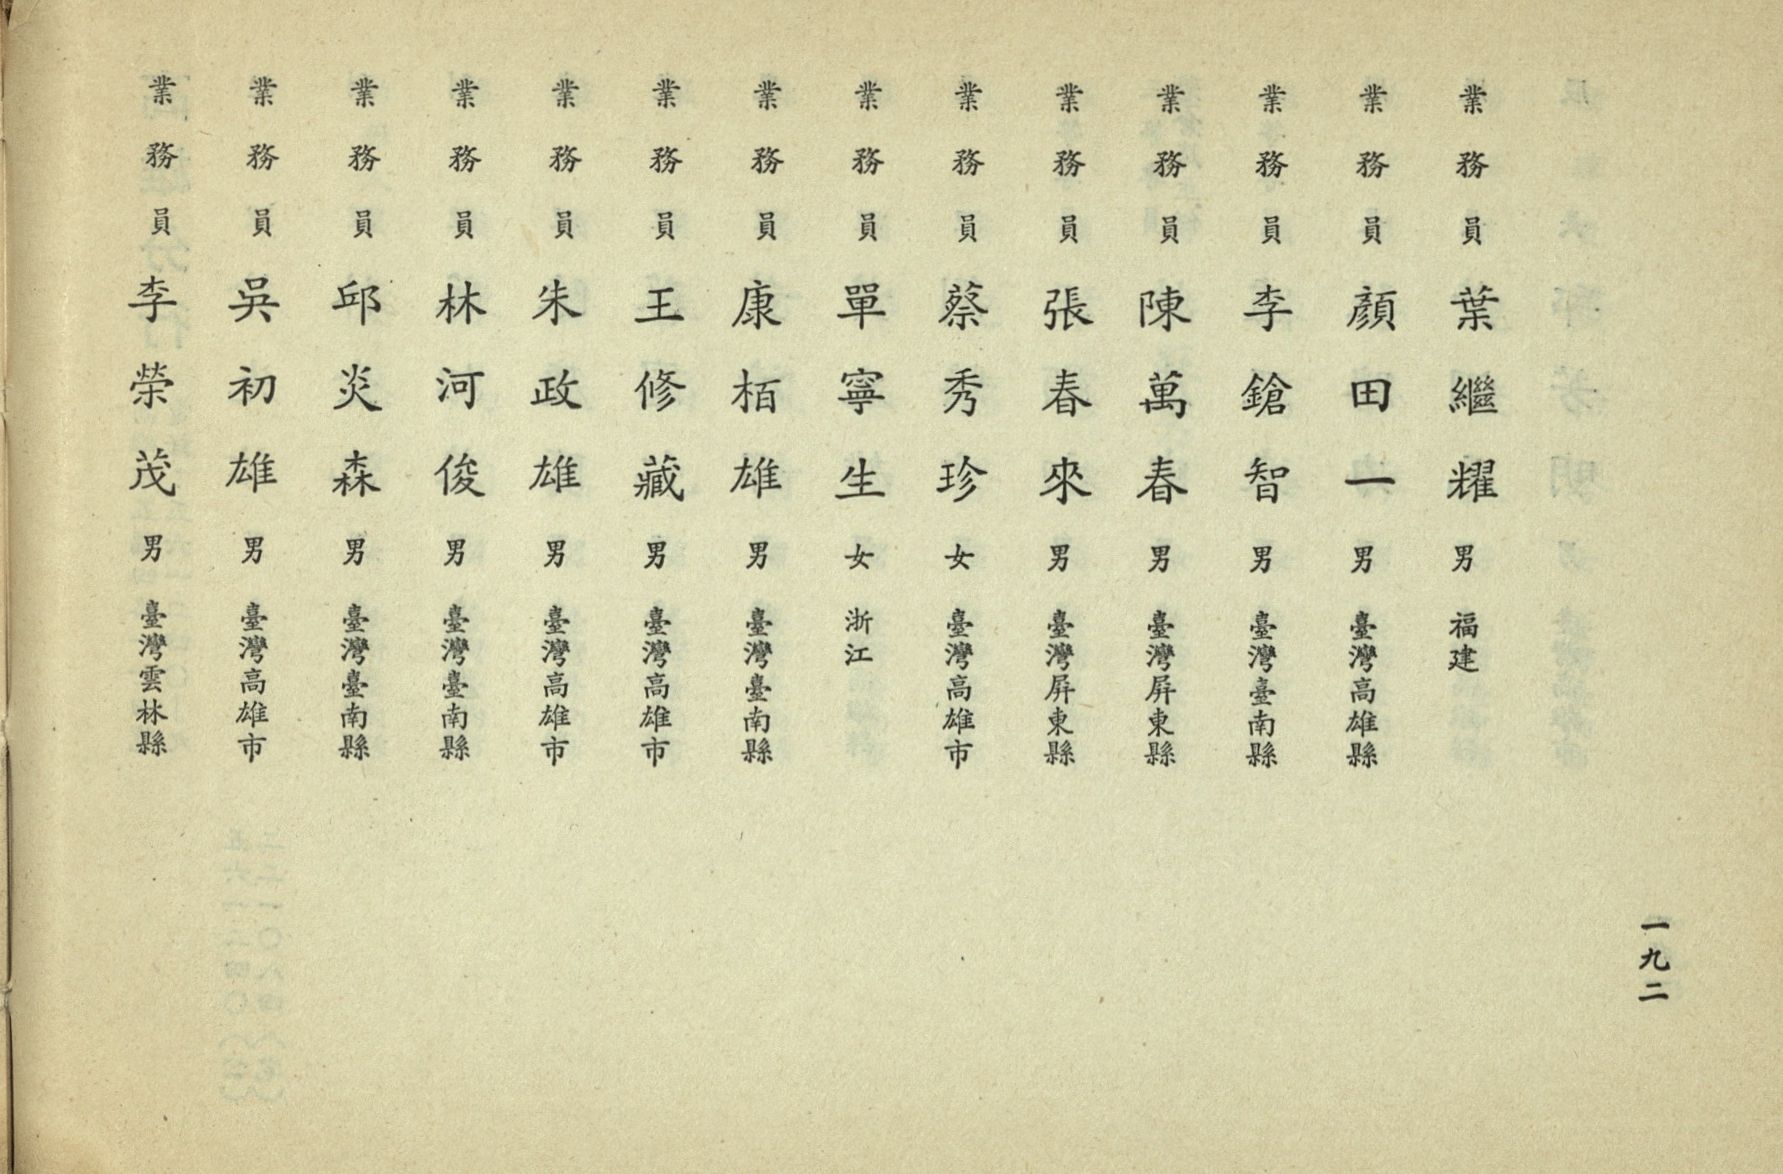 一九二
業務員 葉繼耀 男 福建
業務員 顏田一 男 臺灣高雄縣
業務員 李鎗智 男 臺灣臺南縣
業務員 陳萬春 男 臺灣屏東縣
業務員 張春來 男 臺灣屏東縣
業務員 蔡秀珍 女 臺灣高雄市
業務員 單寧生 女 浙江
業務員 康栢雄 男 臺灣臺南縣
業務員 王修藏 男 臺灣高雄市
業務員 朱政雄 男 臺灣高雄市
業務員 林河俊 男 臺灣臺南縣
業務員 邱炎森 男 臺灣臺南縣
業務員 吳初雄 男 臺灣高雄市
業務員 李榮茂 男 臺灣雲林縣